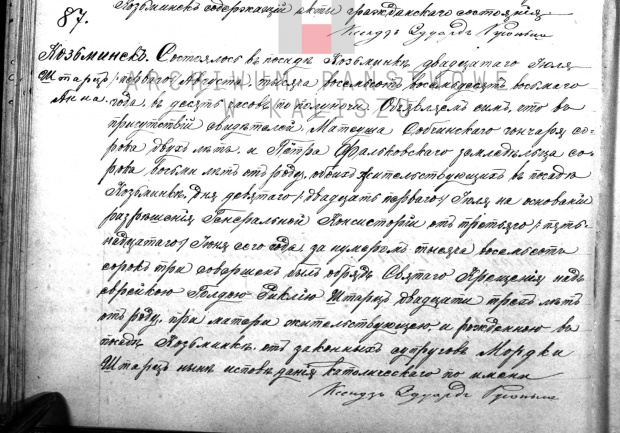 Козьминск содержащій акты гражданскаго состоянія
Ксендзъ Эдуардъ
87.
Козьминскъ. Состоялось въ посадѣ Козьминкѣ двадцатаго Іюля
Штарцъ / перваго Августа, тысяча восемьсотъ восемьдесятъ восьмаго
Анна. года, въ десять часовъ по полуночи. Объявляемъ симъ, что въ
присутствіи свидѣтелей, Матеуша гончаря со-
рока двухъ лѣтъ, и Петра Фальковскаго земледѣльца со-
рока восьми лѣтъ отъ роду, обоихъ жительствующихъ въ посадѣ
Козьминкѣ, дня девятаго / двадцать перваго / Іюля на основаніи
разрѣшенія Генеральной Консисторіи отъ третьяго / пят-
надцатаго / Іюня сего года, за нумеромъ тысяча восемьсотъ
сорокъ три совершенъ былъ обрядъ Святаго Крещенія надъ
еврейкою Гольдою Штарцъ двадцати трехъ лѣтъ
отъ роду, при матери жительствующею и рожденною въ
посадѣ Козьминкѣ, отъ законныхъ супруговъ Мордки
Штарцъ нынѣ исповѣданія католическаго по имени
Ксендзъ Эдуардъ
ARCHIWUM PAŃSTWOWE
W KALISZU